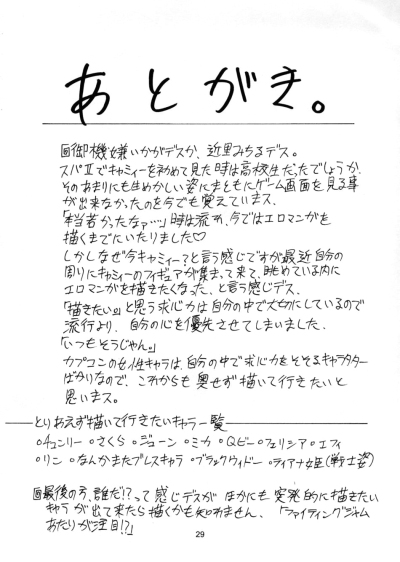 あとがき。
回御機嫌いかがデスか、近里みちるデス。
スパⅡでキャミィーを初めて見た時は高校生だったでしょうか、
そのあまりにも生めかしい姿にまともにゲーム画面を見る事
が出来なかったのを今でも覚えていまス、
「本当若かったなァ…」時は流れ、今ではエロマンガを
描くまでにいたりました♡
しかしなぜ今キャミィー?と言う感じですが最近自分の
周りにキャミィーのフィギュアが集まって来て、眺めている内に
エロマンガを描きたくなった、と言う感じデス、
「描きたい」と思う求心力は自分の中で大切にしているので
流行より、自分の心を優先させてしまいました、
「いつもそうじゃん。」
カプコンの女性キャラは、自分の中で求心力をそそるキャラクター
ばかりなので、これからも臆せず描いて行きたいと
思いまス。
とりあえず描いて行きたいキャラ一覧
○チュンリー○さくら○ジューン○ミカ○Qビー○フェリシア○エフィ
○リン○なんかまたブレスキャラ○ブラックウィドー○ティアナ姫(戦士姿)
回最後の方、誰だ!?って感じデスが ほかにも突発的に描きたい
キャラが出て来たら描くかも知れません、「ファイティングジャム
あたりが注目!?」
29